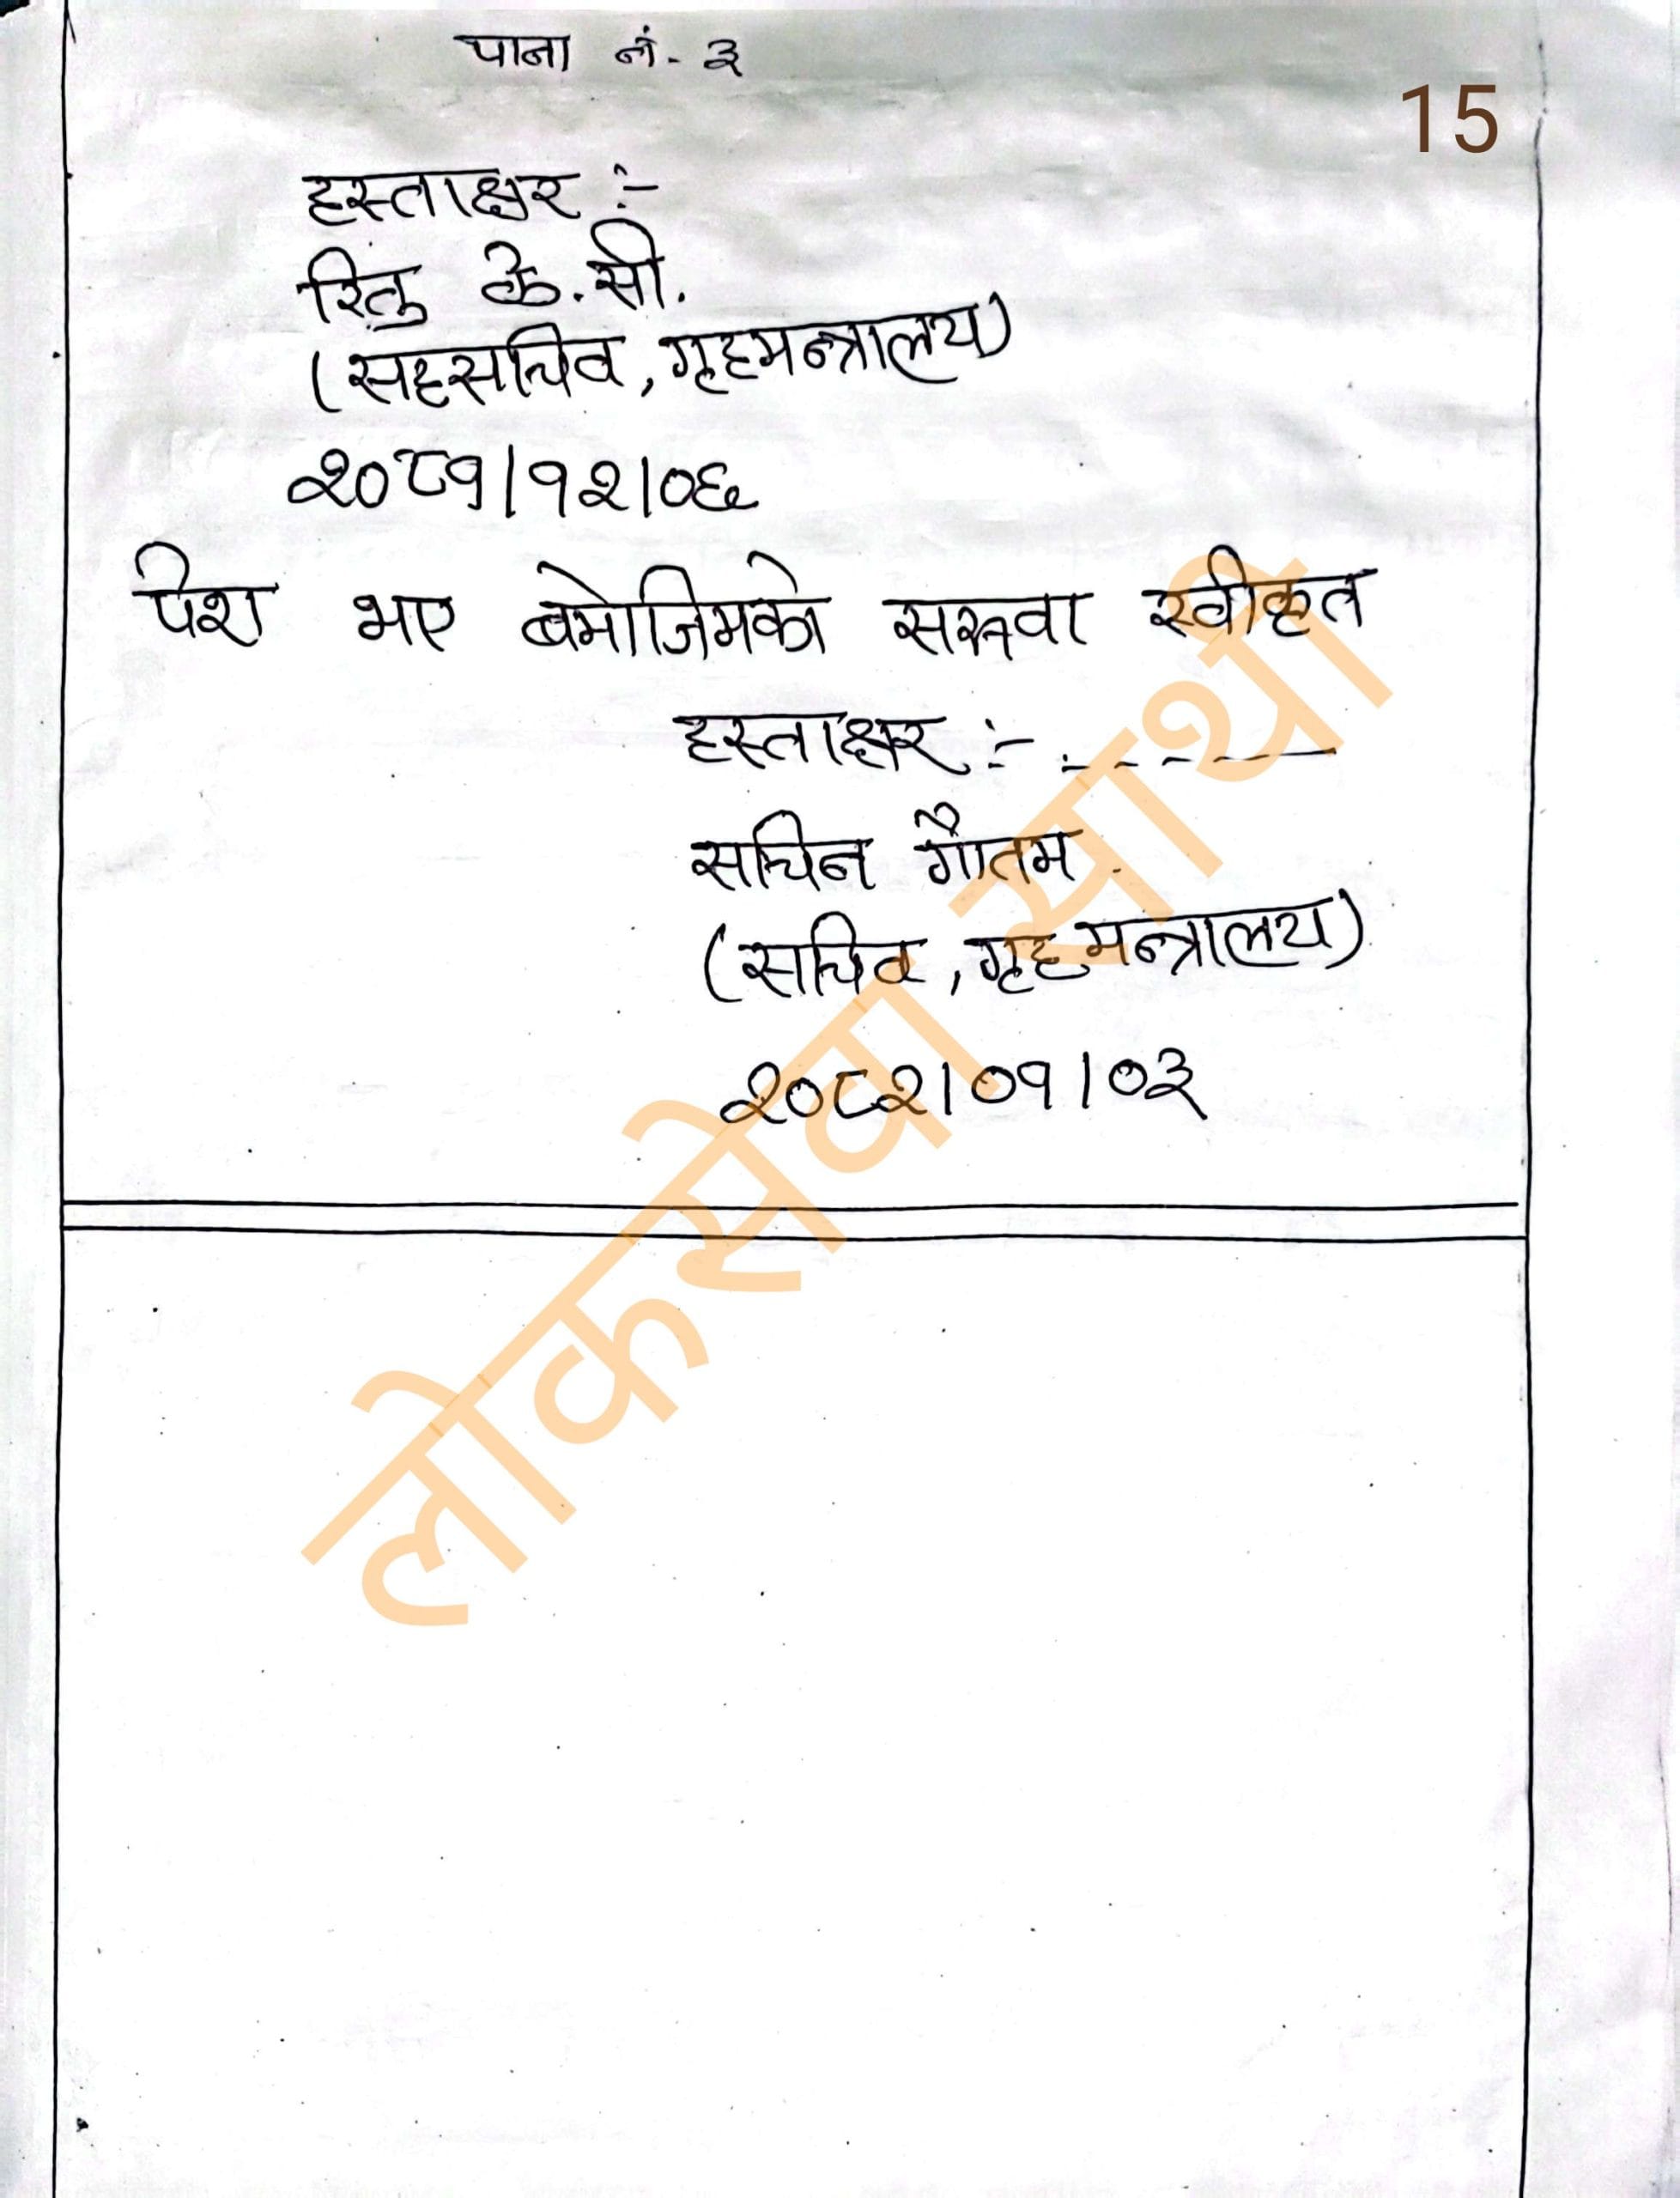 पाना नं- ३
15
हस्ताक्षर :-
रितु के.सी.
(सहसचिव, गृहमन्त्रालय)
२०८१।१२।०६
पेश भए बमोजिमको सरुवा स्वीकृत
हस्ताक्षर :- - - - - -
सचिन गौतम
(सचिव, गृहमन्त्रालय)
२०८२।०१।०३
लोकसेवा साथी